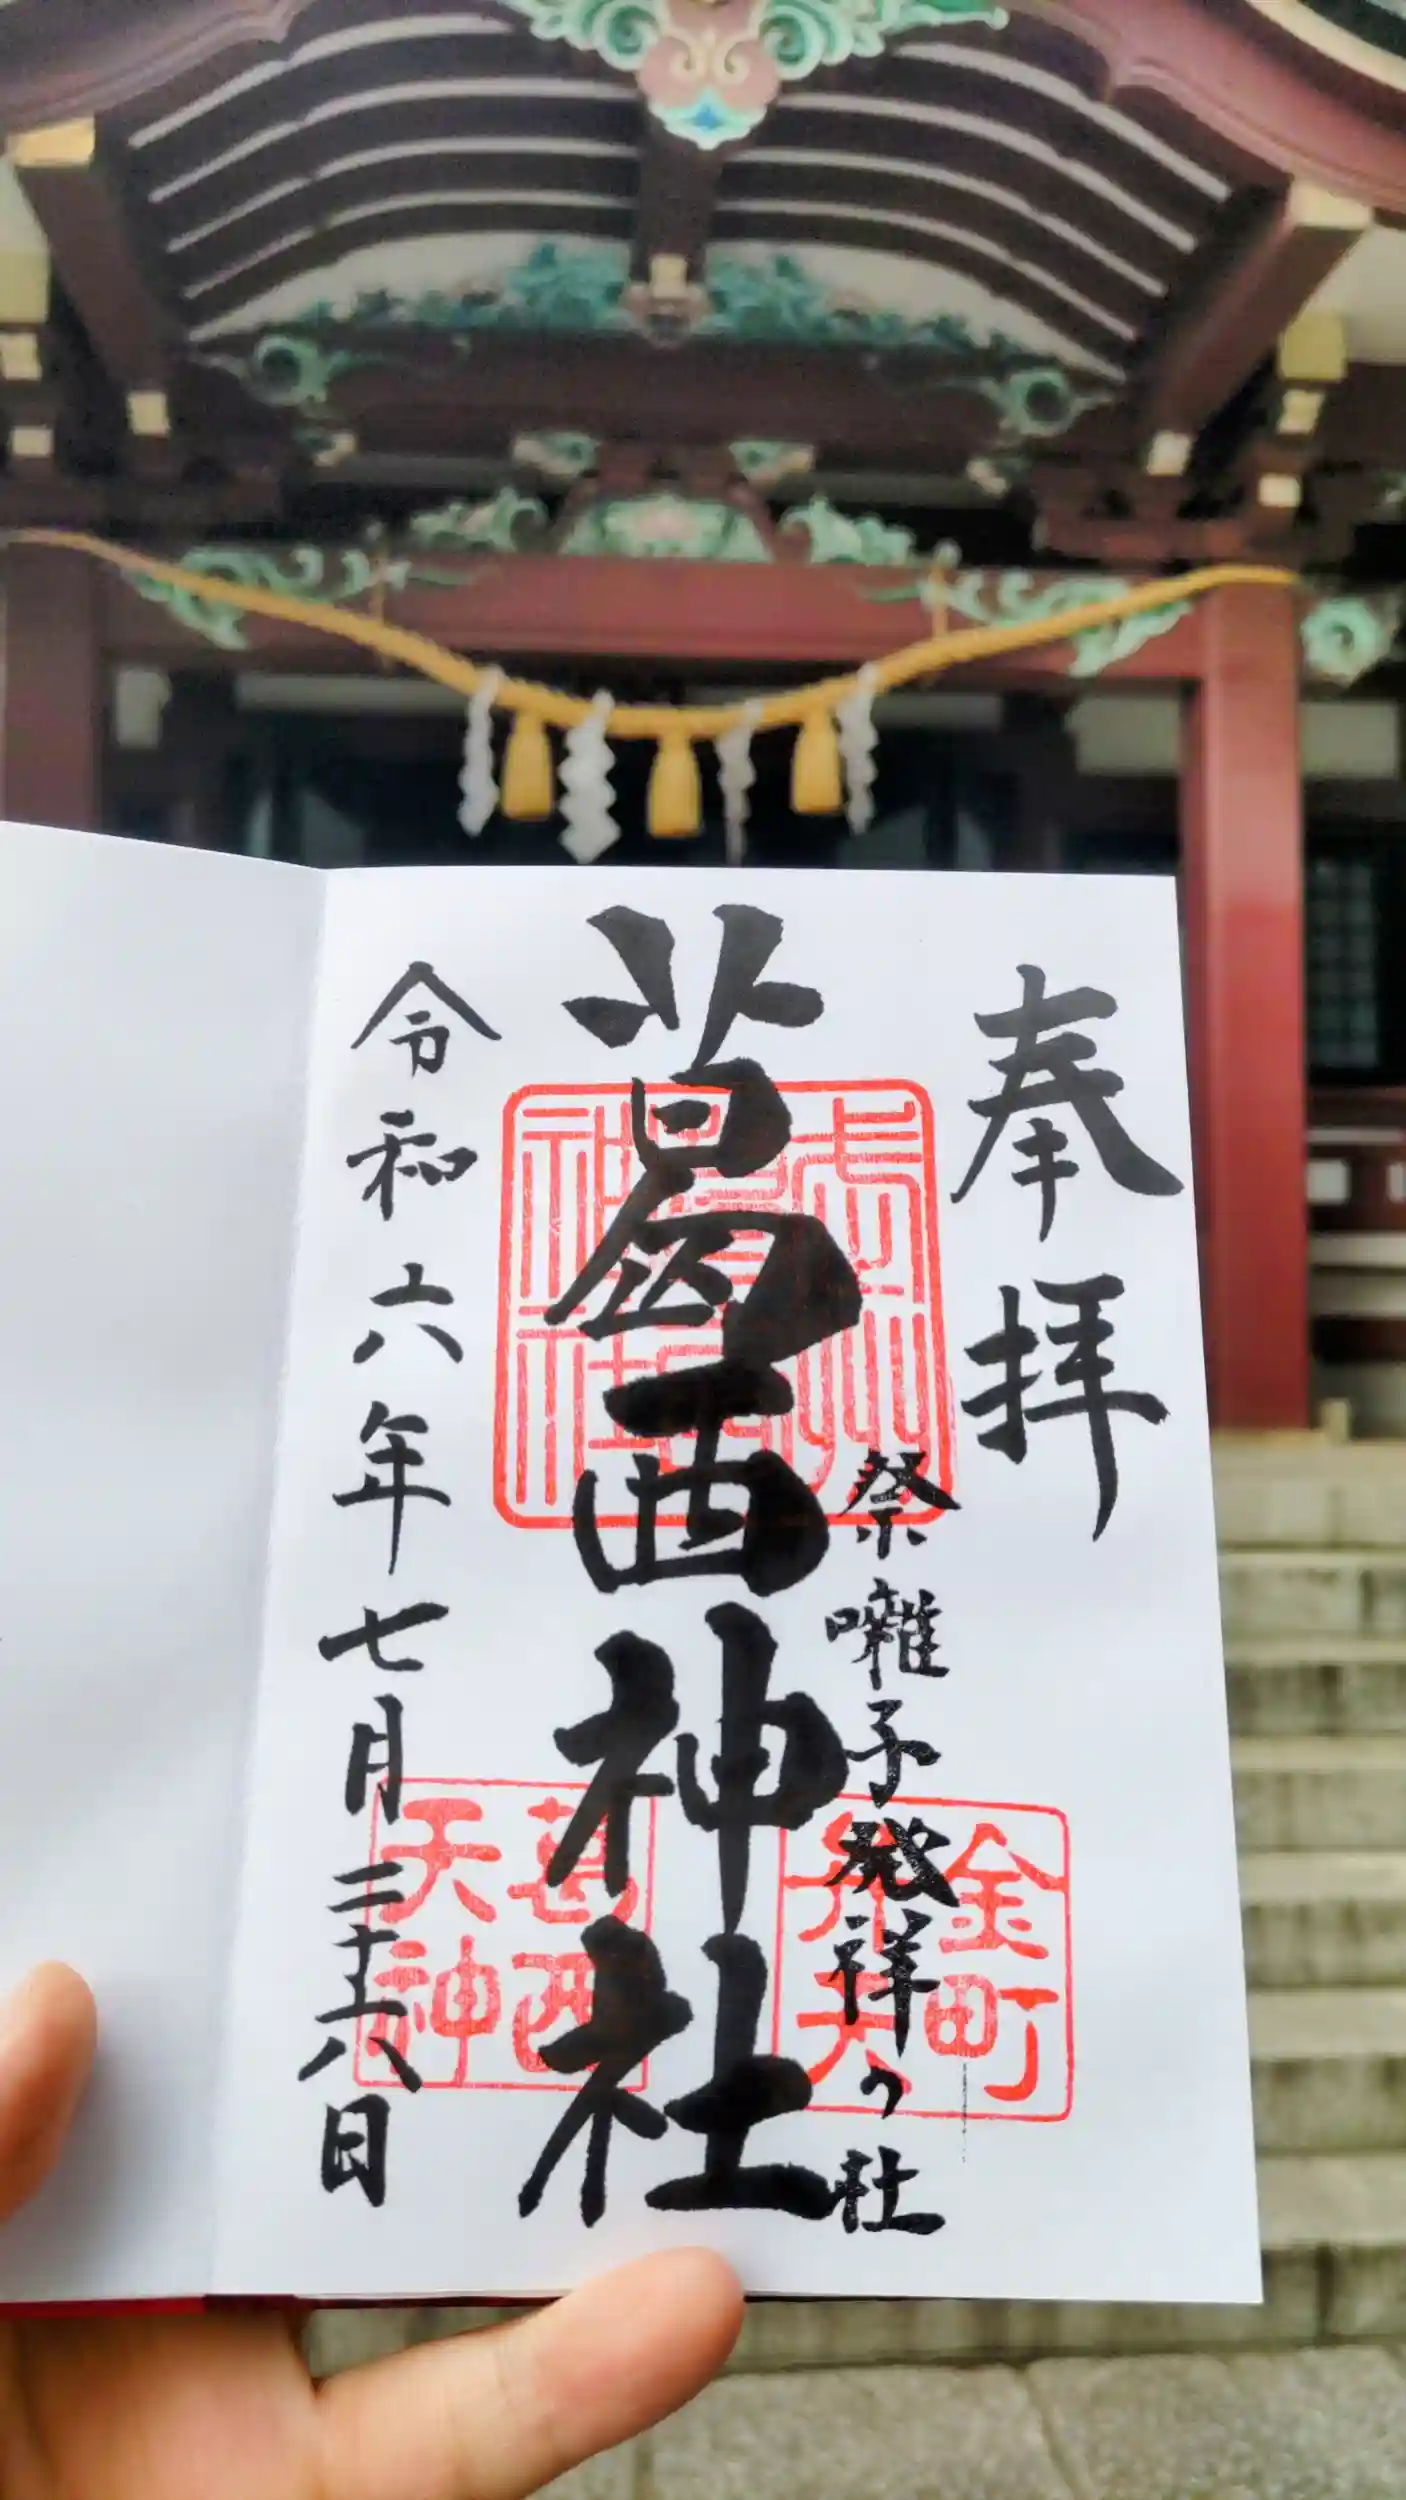 奉拝
祭囃子発祥の社
葛西神社
令和六年七月二十六日
金町
弁天
葛西
天神